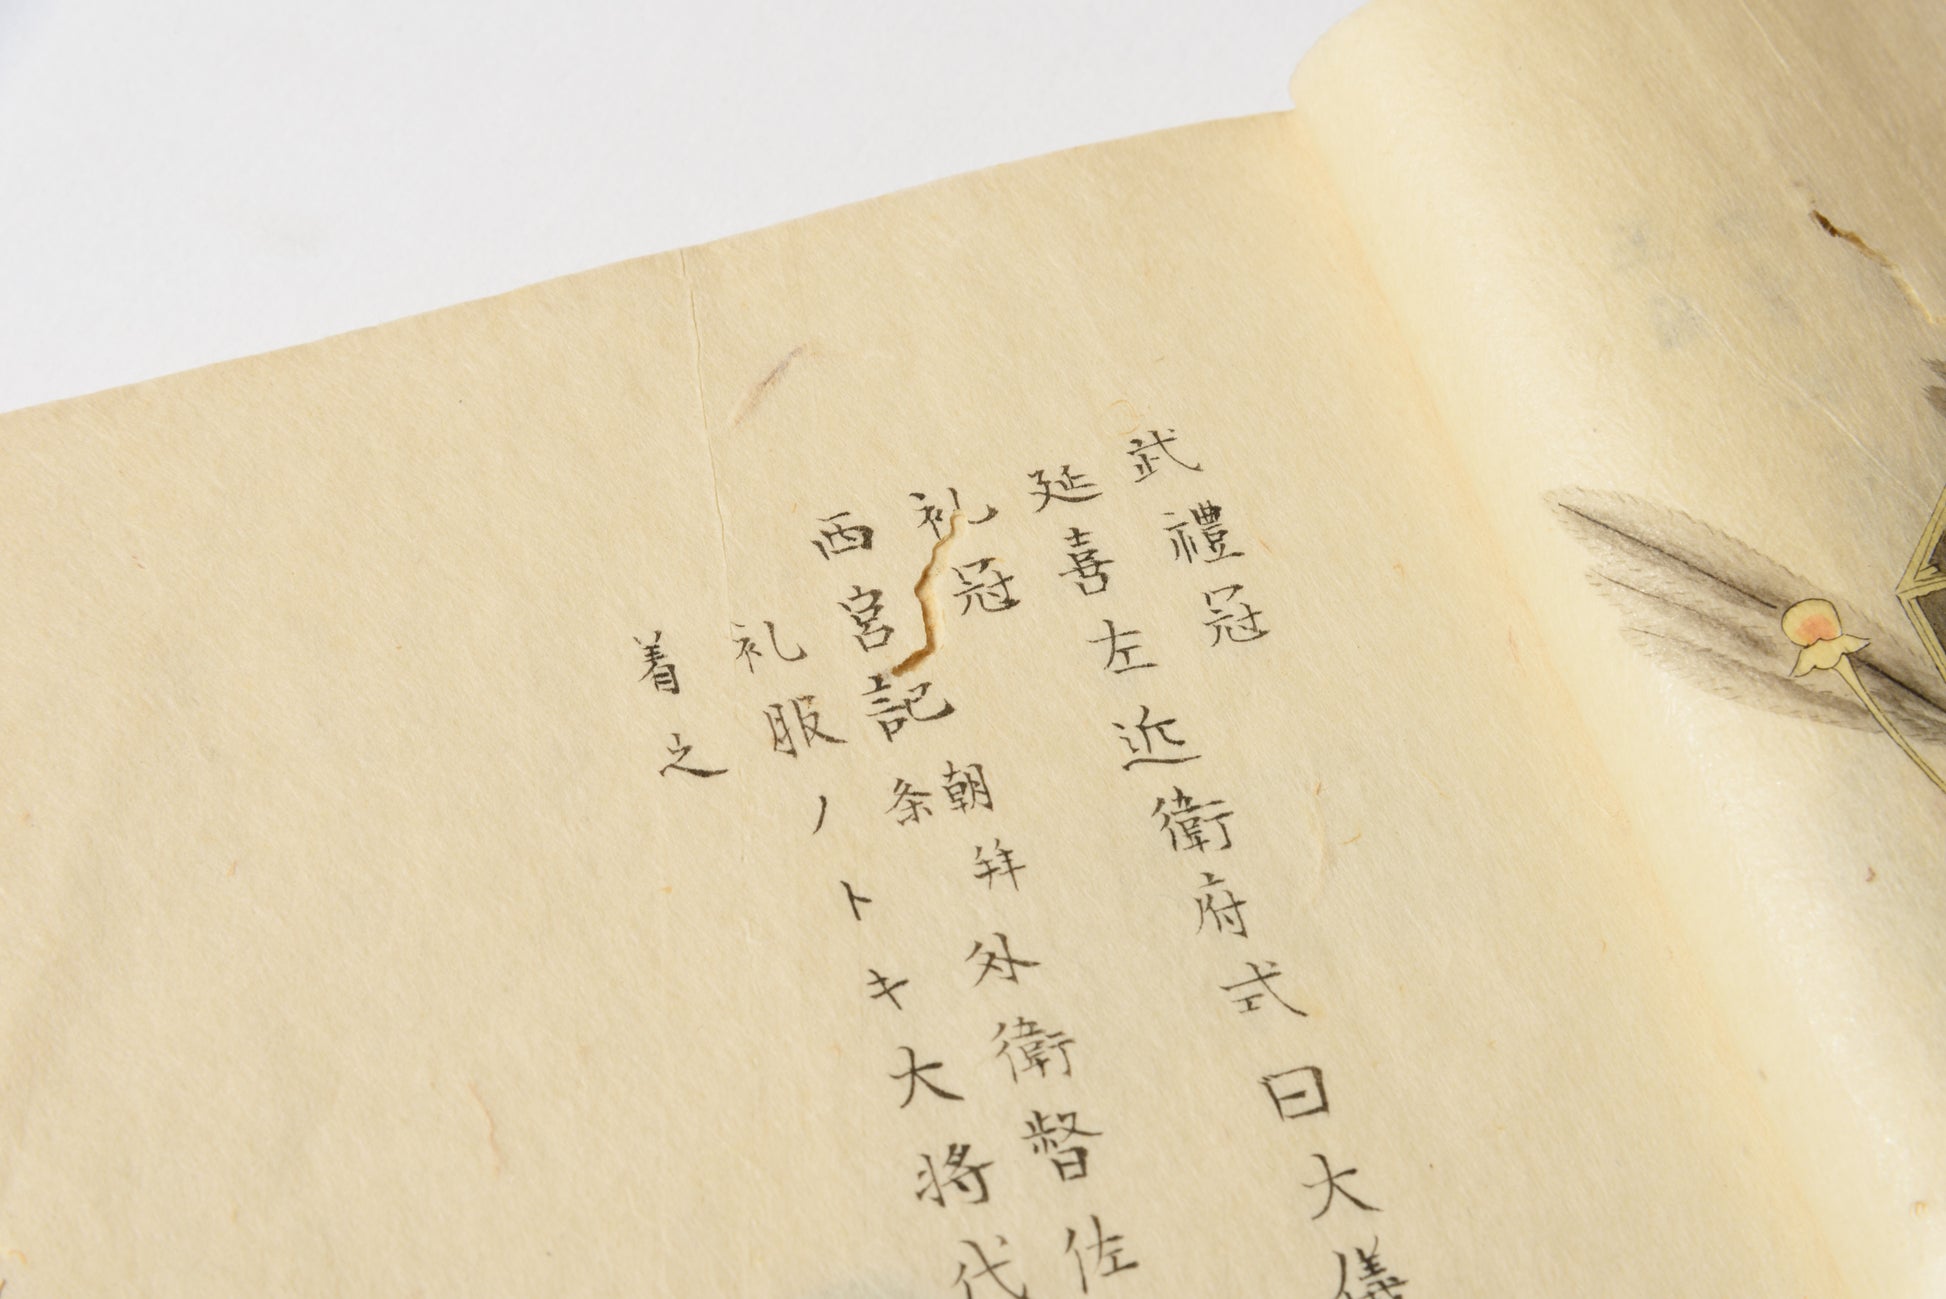 武禮冠
延喜左近衛府式曰大儀
礼冠
西宮記朝拜条外衛督佐
礼服ノトキ大将代
着之